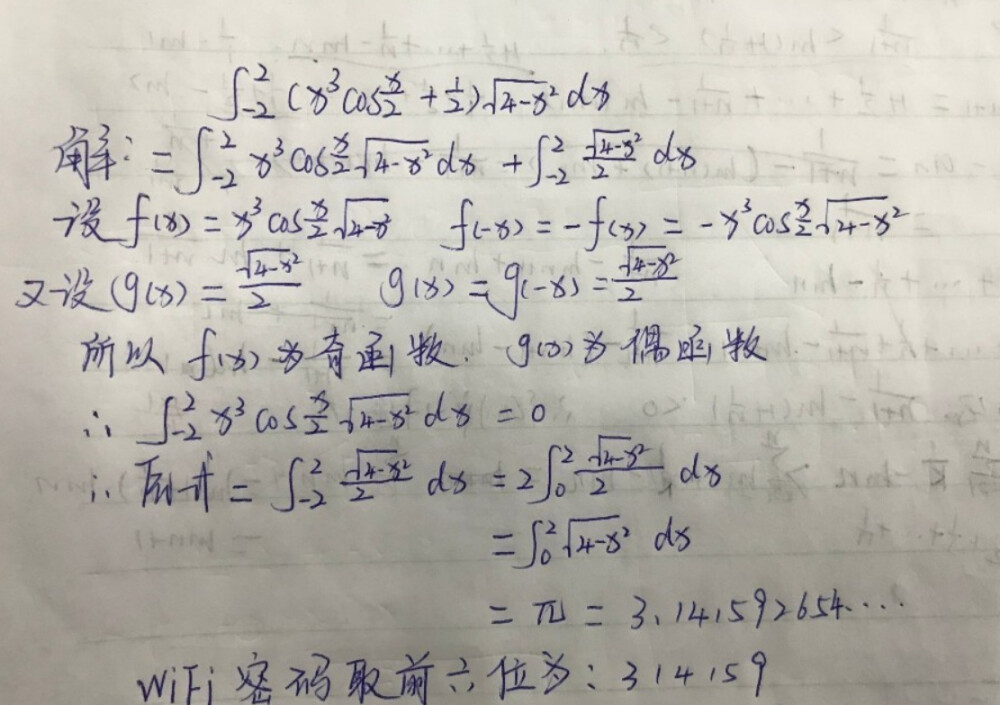 ∫₋₂² (x³cos x/2 + 1/2)√(4-x²) dx
解: = ∫₋₂² x³cos x/2 √(4-x²) dx + ∫₋₂² √(4-x²)/2 dx
设 f(x) = x³cos x/2 √(4-x²) f(-x) = -f(x) = -x³cos x/2 √(4-x²)
又设 g(x) = √(4-x²)/2 g(x) = g(-x) = √(4-x²)/2
所以 f(x) 为奇函数. g(x) 为偶函数
∴ ∫₋₂² x³cos x/2 √(4-x²) dx = 0
∴ 原式 = ∫₋₂² √(4-x²)/2 dx = 2∫₀² √(4-x²)/2 dx
= ∫₀² √(4-x²) dx
= π = 3.141592654....
WiFi 密码取前六位为: 314159